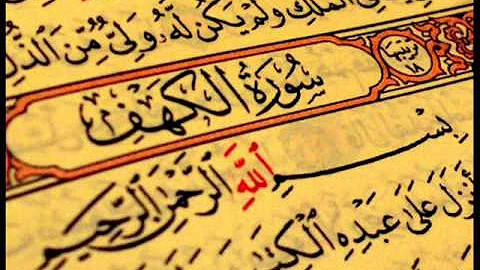 ٱلۡمُلۡكِ وَلَمۡ يَكُن لَّهُۥ وَلِيٌّ مِّنَ ٱلذُّلِّ
سُورَةُ الكَهۡفِ
بِسۡمِ ٱللَّهِ ٱلرَّحۡمَٰنِ ٱلرَّحِيمِ
أَنزَلَ عَلَىٰ عَبۡدِهِ ٱلۡكِتَٰبَ